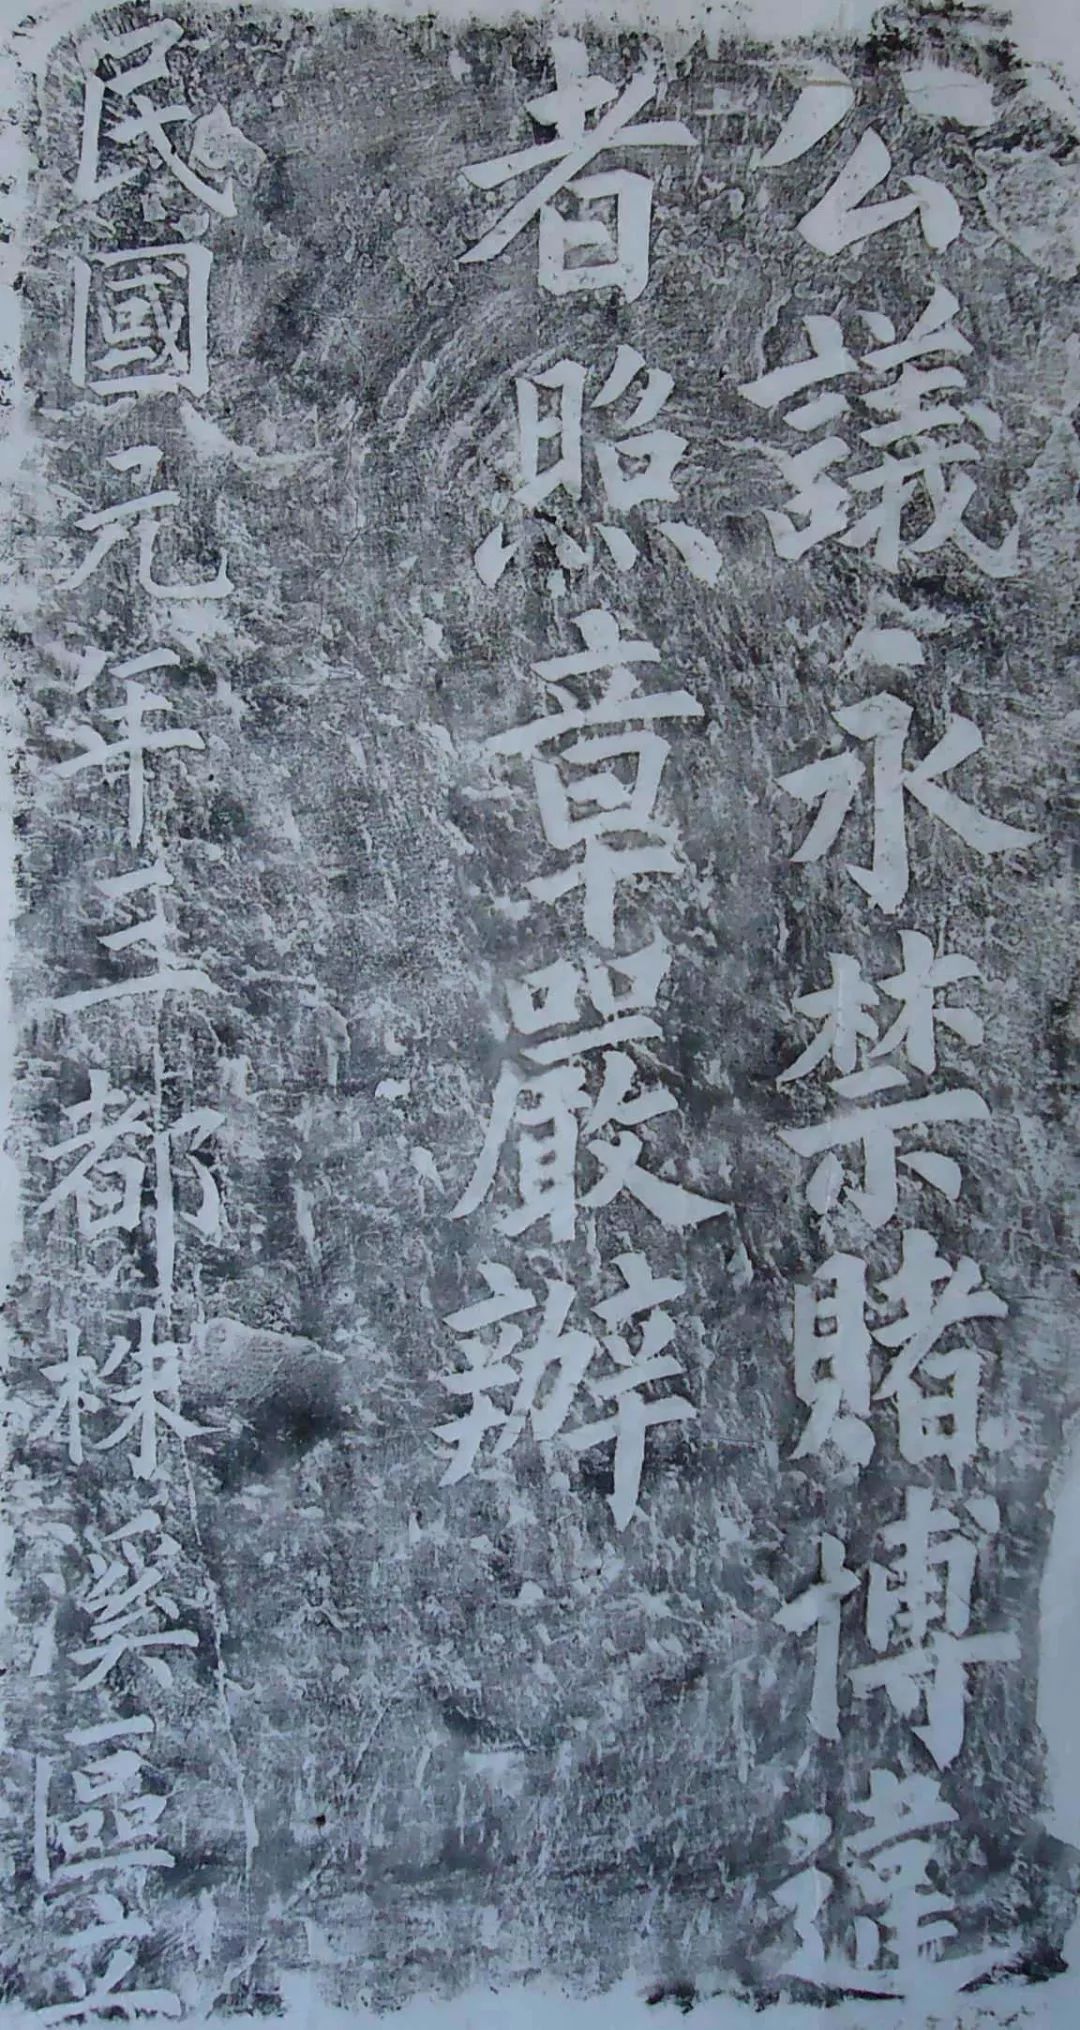 公議永禁賭博違
者照章嚴辦
民國元年三都株溪區立